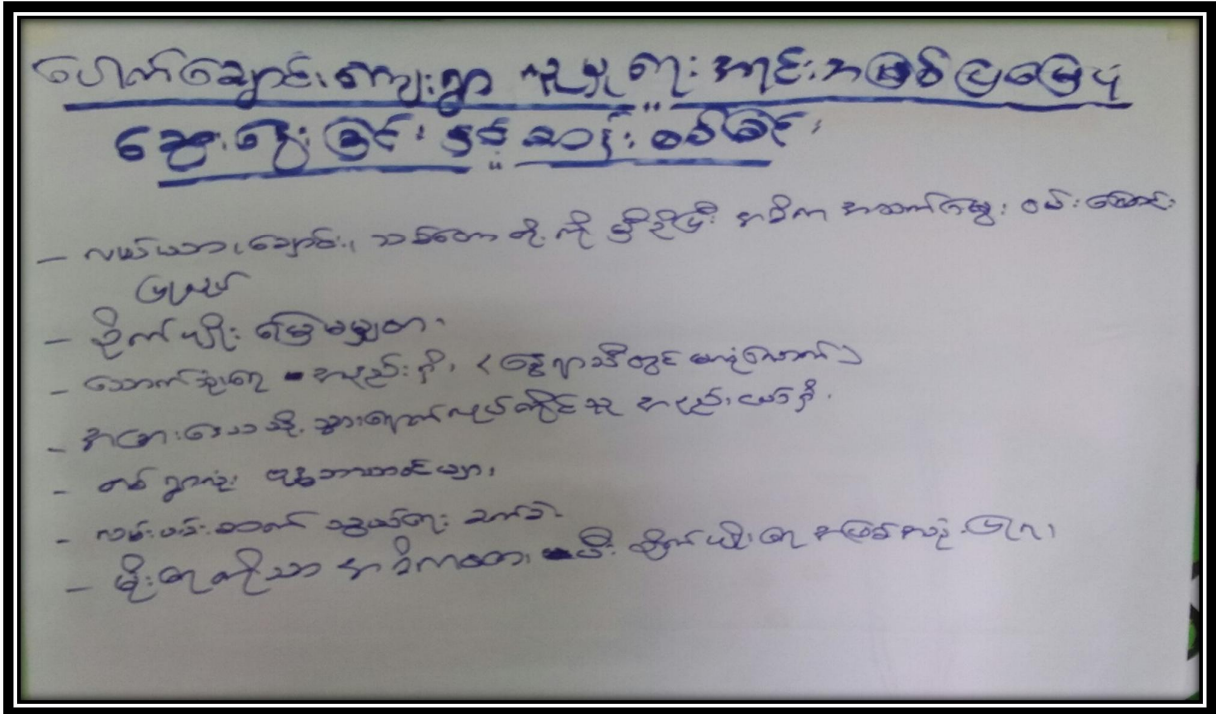 ပေါက်ချောင်းကျေးရွာ လူမှုရေး အရင်းအမြစ်ပြမြေပုံ
ဆွေးနွေးခြင်း နှင့် ဆန်းစစ်ခြင်း
- လယ်ယာ၊ ချောင်း၊ သစ်တော တို့ကို မှီခိုပြီး အဓိက အသက်မွေး ဝမ်းကျောင်း
ပြုလုပ်
- စိုက်ပျိုး မြေမမျှတ၊
- သောက်သုံးရေ အနည်းရှိ၊ (နွေရာသီတွင် မလုံလောက်)
- အခြားဒေသသို့ သွားရောက်လုပ်ကိုင်သူ အနည်းငယ်ရှိ၊
- တစ်ရွာလုံး ဗုဒ္ဓဘာသာဝင်များ၊
- လမ်းပန်းဆက်သွယ်ရေး ခက်ခဲ
- မိုးရေကိုသာ အဓိကထား ပြီး စိုက်ပျိုးရေ အဖြစ်အသုံးပြုရ၊